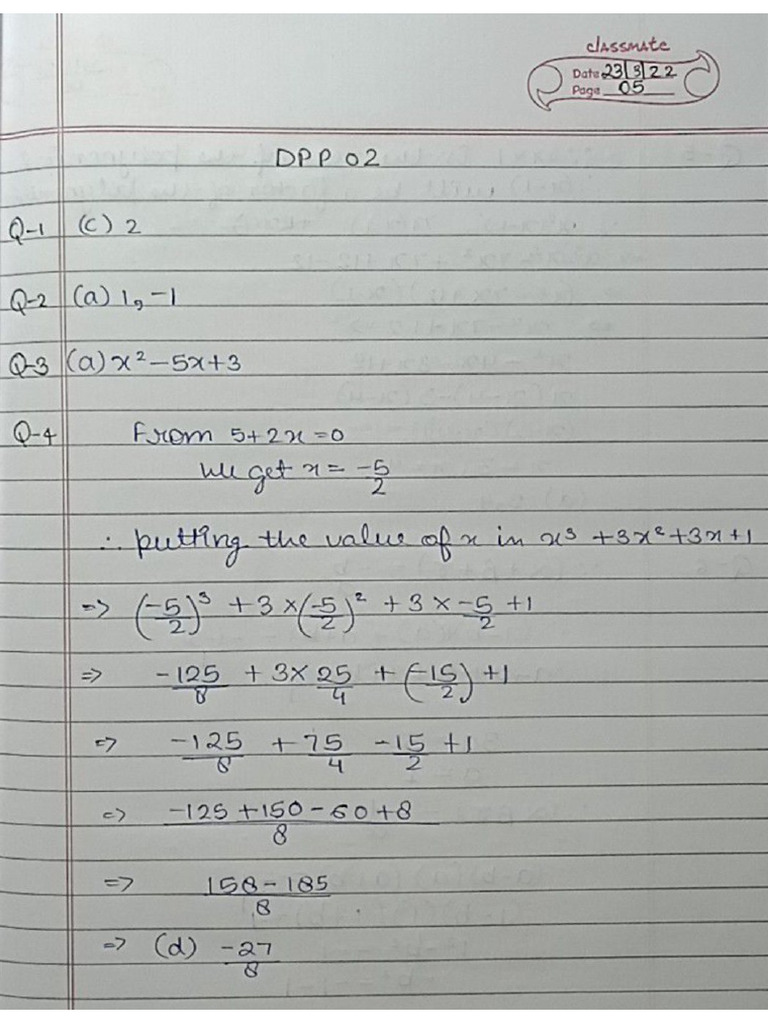 classmate
Date 23/3/22
Page 05
DPP 02
Q-1 (c) 2
Q-2 (a) 1, -1
Q-3 (a) x² - 5x + 3
Q-4 From 5+2x=0
we get x = -5/2
∴ putting the value of x in x³ + 3x² + 3x + 1
=> (-5/2)³ + 3 × (-5/2)² + 3 × -5/2 + 1
=> -125/8 + 3 × 25/4 + (-15/2) + 1
=> -125/8 + 75/4 - 15/2 + 1
=> -125 + 150 - 60 + 8/8
=> 158 - 185/8
=> (d) -27/8